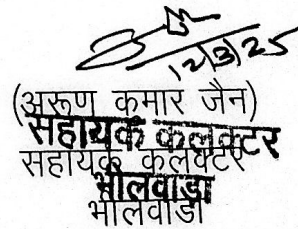 12/3/25
(अरूण कुमार जैन)
सहायक कलक्टर
सहायक कलक्टर
भीलवाडा
भीलवाडा